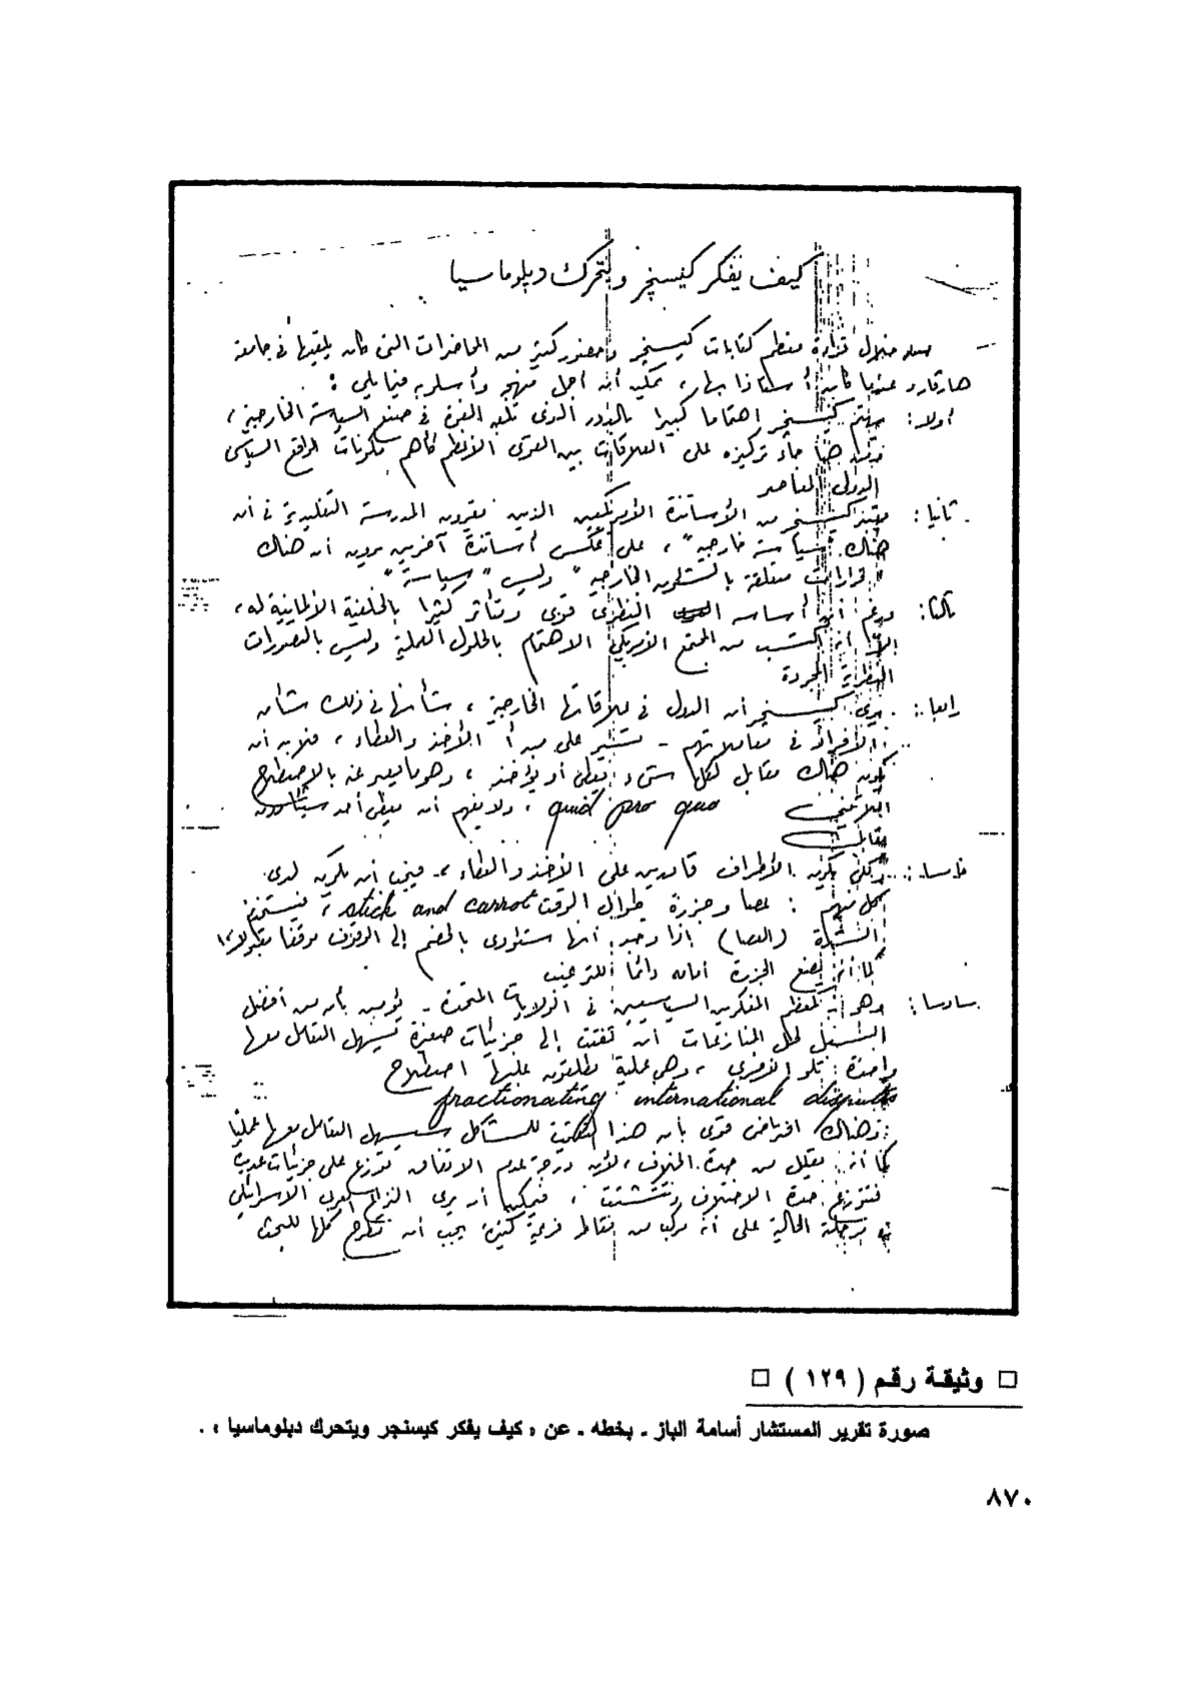 كيف يفكر كيسنجر ويتحرك دبلوماسيا
من خلال قراءة معظم كتابات كيسنجر وحضور كثير من المحاضرات التى كان يلقيها فى جامعة
هارڤارد عندما كان أستاذا بها، يمكن أن أجمل منهجه وأسلوبه فيما يلى :
أولا: يهتم كيسنجر اهتماما كبيرا بالدور الذى تلعبه القوة فى صنع السياسة الخارجية،
هنا جاء تركيزه على العلاقات بين القوى الأعظم كأهم مكونات الواقع السياسى
الدولى المعاصر
ثانيا: يعتبر كيسنجر من الأساتذة الأمريكيين الذين يقرون المدرسة التقليدية فى أن
هناك "سياسة خارجية"، على عكس أساتذة آخرين يرون أن هناك
"قرارات متعلقة بالشئون الخارجية" وليس "سياسة"
ثالثا: ورغم أن أساسه النظرى قوى ومتأثر كثيرا بالخلفية الألمانية له،
إلا أنه اكتسب من المجتمع الأمريكى الاهتمام بالحلول العملية وليس بالتصورات
النظرية المجردة
رابعا: يرى كيسنجر أن الدول فى علاقاتها الخارجية، شأنها فى ذلك شأن
الأفراد فى معاملاتهم - تسير على مبدأ الأخذ والعطاء، فلابد أن
يكون هناك مقابل لكل شىء يعطى أو يؤخذ، وهو ما يعبر عنه بالاصطلاح
اللاتينى quid pro quo ، ولا يفهم أن يعطى أحد شيئا دون
مقابل
خامسا: ولكى يكون الأطراف قادرين على الأخذ والعطاء، فيجب أن يكون لدى
كل منهم : عصا وجزرة طوال الوقت stick and carrot، فيستخدم
الشدة (العصا) إذا وجد أنها ستؤدى بالخصم إلى الوقوف موقفا مقبولا،
كما أنه يضع الجزرة أمامه دائما للترغيب
سادسا: وهو أنه كمعظم المفكرين السياسيين فى الولايات المتحدة - يؤمن بأن من أفضل
السبل لحل المنازعات أن تفتت إلى جزئيات صغيرة يسهل التعامل معها
واحدة تلو الأخرى، وهى عملية يطلقون عليها اصطلاح
fractionating international disputes
وهناك افتراض قوى بأن هذا التفتيت للمشاكل سيسهل التعامل معها عمليا
كما أنه يقلل من حدة الخلاف، لأن درجة عدم الاتفاق توزع على جزئيات عديدة
فتتوزع حدة الاختلاف وتتشتت، فيمكن أن يرى النزاع العربى الاسرائيلى
فى مرحلته الحالية على أنه مركب من نقاط فرعية كثيرة يجب أن تطرح كلها للبحث
□ وثيقة رقم ( ١٢٩ ) □
صورة تقرير المستشار أسامة الباز ـ بخطه ـ عن « كيف يفكر كيسنجر ويتحرك دبلوماسيا » .
٨٧٠